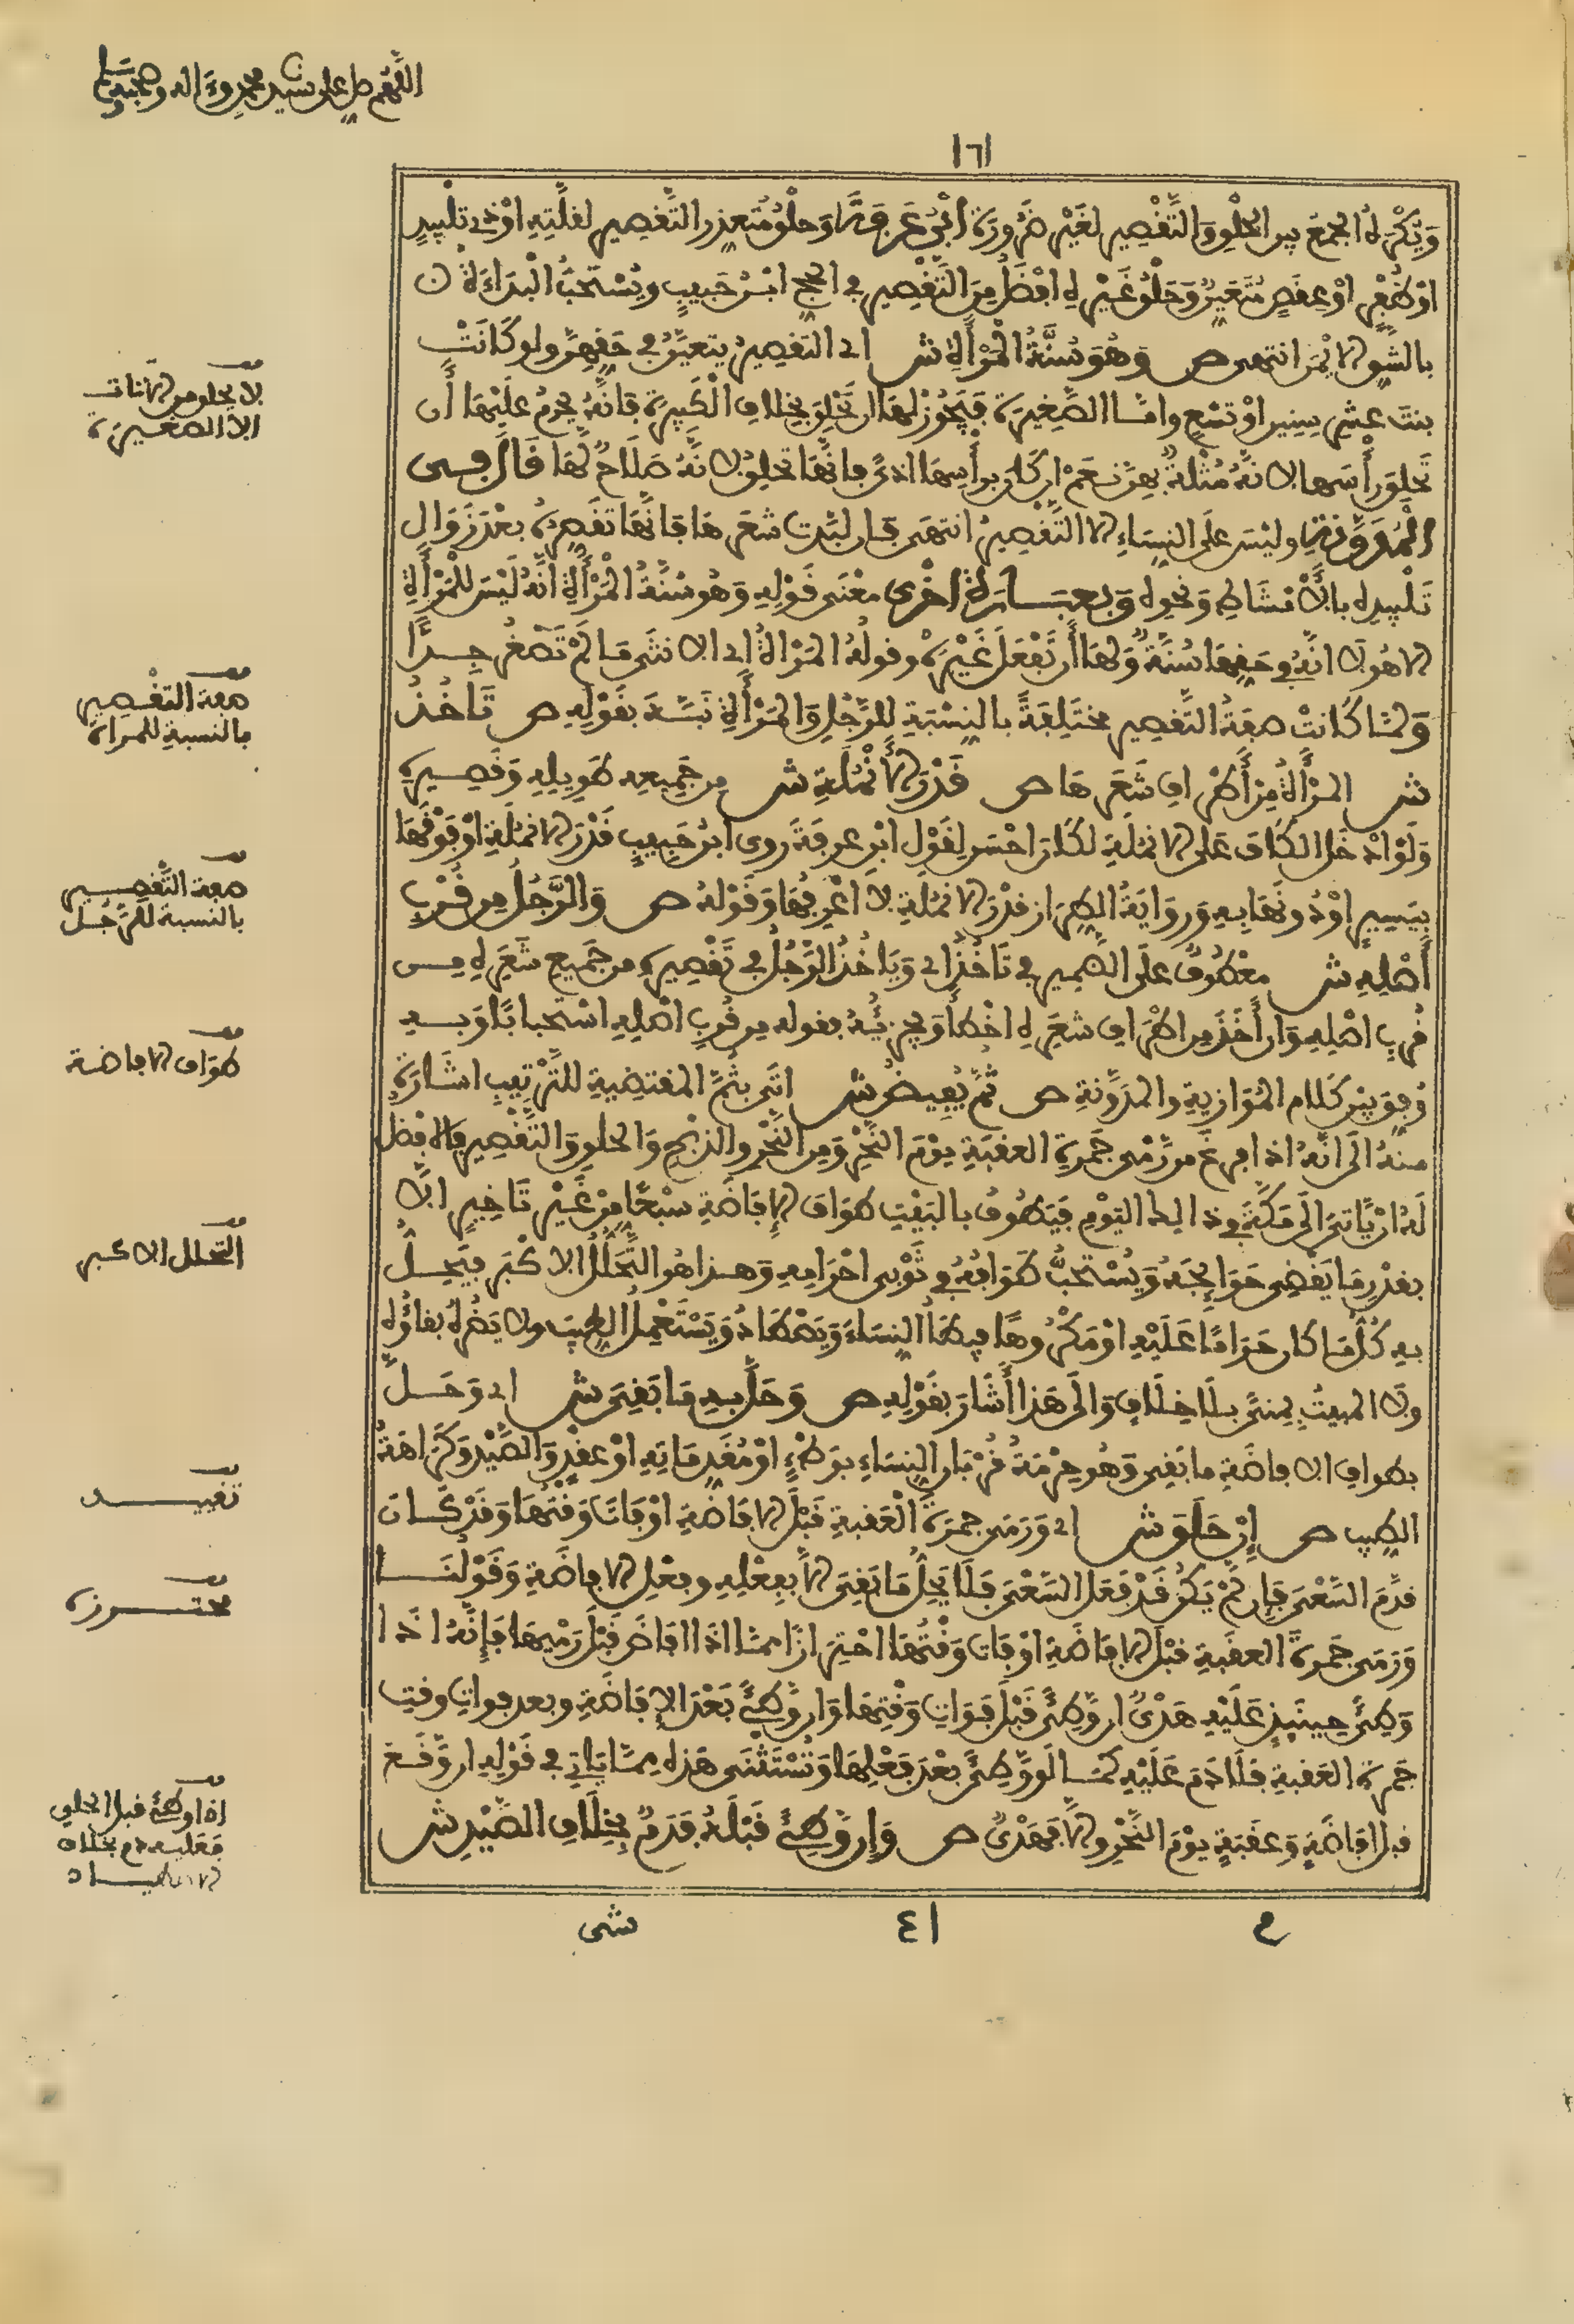 اللهم صل على سيدنا محمد وءاله وصحبه وسلم
١٦١
وَيُكْرَهُ الجمعَ بين الحلْقِ وَالتَّقْصِيرِ لغَيْرِ ضَرُورَةٍ ابْنُ عَرَفَةَ وَحَلْقُ مُتَعذر التَّقصِيرِ لقلَّتِهِ اوْ ذى تلْبِيدٍ
اوْ ضُفْرٍ اوْ عقصٍ مُتَعَيِّنٌ وَحَلْقُ غَيْرِهِ افْضَلُ مِنَ التَّقْصِيرِ فى الحج ابْنُ حَبِيبٍ ويُسْتَحَبُّ الْبَدَاءَةُ
بالشق الايْمَن انتهى ص وَهُوَ سُنَّةُ الْمَرْأَةِ ش اى التقصِيرُ يتعيَّنُ فى حَقهِنَّ ولو كَانَتْ
بنتَ عشرِ سِنِين اوْ تسْعٍ وامَّا الصَّغِيرَة فَيَجُوزُ لهَا ان تَحْلِقَ بخلافِ الْكَبِيرَة فانَّهُ يحرُمُ عَلَيْهَا أَن
تَحْلِقَ رأْسَها لانَّهُ مُثْلَةٌ بهِنَّ نَعَمْ ان كَانَ برأْسِهَا اذىً فانَّهَا تحلِقُ لانَّهُ صَلَاحٌ لَهَا قَالَ فِى
الْمُدَوَّنَةِ وليْسَ عَلَى النِّسَاءِ الا التَّقْصِيرُ انتهَى فان لبَّدت شعَرَهَا فانَّهَا تقَصِرُهُ بعْدَ زَوَالِ
تَلْبِيدِهِ بالامْتشَاطِ وَنحوِهِ وَبعبَارَةٍ اخْرَى معْنَى قوْلِهِ وَهُو سُنَّةُ الْمَرْأَةِ انَّهُ لَيْسَ للْمَرْأَةِ
الا هُو لا انَّهُ فى حَقِهَا سُنَّةٌ وَلهَا أَن تَفْعَلَ غَيْرَهُ وقولُهُ المَرْاةُ اى الانثَى مَا لَمْ تَصْغُر جِدًّا
وَلمَّا كَانتْ صفَةُ التَّقصِيرِ مختَلِفَةً بالنِّسْبَةِ للرَّجُلِ وَالمَرْأَةِ نَبَّهَ بقَوْلِهِ ص تَأخُذُ
ش المَرْأَةُ مِنْ أَطْرَافِ شَعَرِهَا ص قَدْرَ الأَنْمُلَةِ ش من جَمِيعِه طَوِيلِهِ وَقَصِيرِهِ
وَلَوْ ادْخَلَ الكَافَ عَلَى الانْمُلَةِ لكَانَ احْسَنَ لِقَوْلِ ابْنِ عرفَةَ روى ابْنُ حَبِيبٍ قَدْرَ الانمُلَةِ اوْ فوْقَهَا
بيَسِيرٍ اوْ دُونَهَا بِهِ وَروَايَةُ الطِّرَازِ قدْرَ الانمُلَةِ لا اعْرِفُهَا وَقَوْلهُ ص وَالرَّجُلُ مِن قُرْبِ
أَصْلِهِ ش معْطُوفٌ علَى الضَّمِيرِ فى تَاخُذُ اى وَيَاخُذُ الرَّجُلُ فى تَقْصِيرِهِ من جَمِيعِ شَعَرِهِ مِن
قُربِ اصْلِهِ وَان أَخَذَ من اطْرَافِ شعَرِهِ اخْطَأَ وَيُجْزِئُهُ بقولهِ من قُربِ اصْلِهِ اسْتحبابًا وَبِهِ
وُفِقَ بَيْنَ كَلام المَوَازِيةِ والمدَوَّنةِ ص ثمَّ يُفِيضُ ش اتَى بثُمَّ المقتضِيةِ للتَّرْتِيبِ اشَارَةً
منهُ الَى انَّهُ اذا فرغَ من رَمْى جَمْرَةِ العقَبَةِ يوْمَ النَّحْرِ وَمِن النَّحْرِ والذبْحِ وَالحلقِ وَالتَّقْصِيرِ فالافضَل
لَهُ انْ يَّاتىَ الَى مَكَّةَ فى ذَالِكَ اليَوْمِ فيَطُوفُ بالبَيْتِ طوَافَ الإفَاضَةِ سبْعًا مِنْ غَيْرِ تَاخِيرٍ الَّا
بقدْرِ مَا يَقضِى حَوَائِجَهُ وَيُسْتحَبُّ طَوَافُهُ فى ثَوْبَى احْرَامِهِ وَهَذا هُو التَّحَلُّلُ الاكْبَر فيَحِلُّ
بهِ كُلُّ مَا كان حَرَامًا عَلَيْهِ اوْ مَكْرُوهًا فيطَأُ النِّسَاءَ وَيَصْطَادُ وَيَسْتَعْمِلُ الطِّيبَ ولا يَضُرُّهُ بقاؤُهُ
ولا المبيتُ بمنىً بلَا خِلَافٍ وَالَى هَذا أَشَارَ بقَوْلِهِ ص وَحَلَّ بِهِ مَا بَقِىَ ش اى وَحَلَّ
بطوافِ الافاضَةِ ما بَقِى وَهُو حِرْمَةُ قُرْبَانِ النِّسَاءِ بوَطْءٍ اوْ مُقَدِمَاتِهِ اوْ عقْدٍ وَالصَّيْد وَكَرَاهَةُ
الطِّيبِ ص إِنْ حَلَقَ ش اى وَرَمَى جمرَةَ الْعَقبةِ قَبْلَ الافَاضَةِ اوْ فَاتَ وَقْتُهَا وَقَدْ كَانَ
قدَّمَ السَّعْىَ فَإِن لَمْ يَكُن قَدْ فَعَلَ السَّعْىَ فَلَا يَحِلُّ مَا بَقِىَ الا بفِعْلِهِ وبفِعْلِ الافاضَةِ وَقَوْلُنَا
وَرَمَى جَمرَةَ العقَبَةِ قبْلَ الافاضَةِ اوْ فات وَقْتُهَا احْترَازًا ممَّا اذَا افاضَ قَبْلَ رَمْيِهَا فَإِنَّهُ اذَا
وَطِئَ حِينَئِذٍ عَلَيْهِ هَدْىٌ ان وَطِئَ قَبْلَ فَوَاتِ وَقْتِهَا وَان وَطِئَ بَعْدَ الإفاضَةِ وبعد فواتِ وقتِ
جَمرةِ العَقبةِ فلَا دَمَ عَلَيْهِ كَمَا لَو وَطِئَ بعْدَ فعْلِهَا وَتُسْتَثْنَى هَذِهِ مِمَّا يَاتِى فى قَوْلِهِ ان وَقَعَ
قبلَ افَاضَةٍ وَعقَبَةٍ يوْمَ النَّحْرِ والا فَهَدْىٌ ص وَإِن وَطِئَ قَبْلَهُ فَدَمٌ بِخِلَافِ الصَّيْدِ ش
١٤
شى
لا يحلق من الاناث
الا الصغيرة
صفة التقصير
بالنسبة للمراة
صفة التقصير
بالنسبة للرَّجُل
طوَاف الافاضة
التحلل الاكبر
تقييد
محترزه
اذا وطئ قبل الحلق
فعليه دم بخلاف
الاصطياد